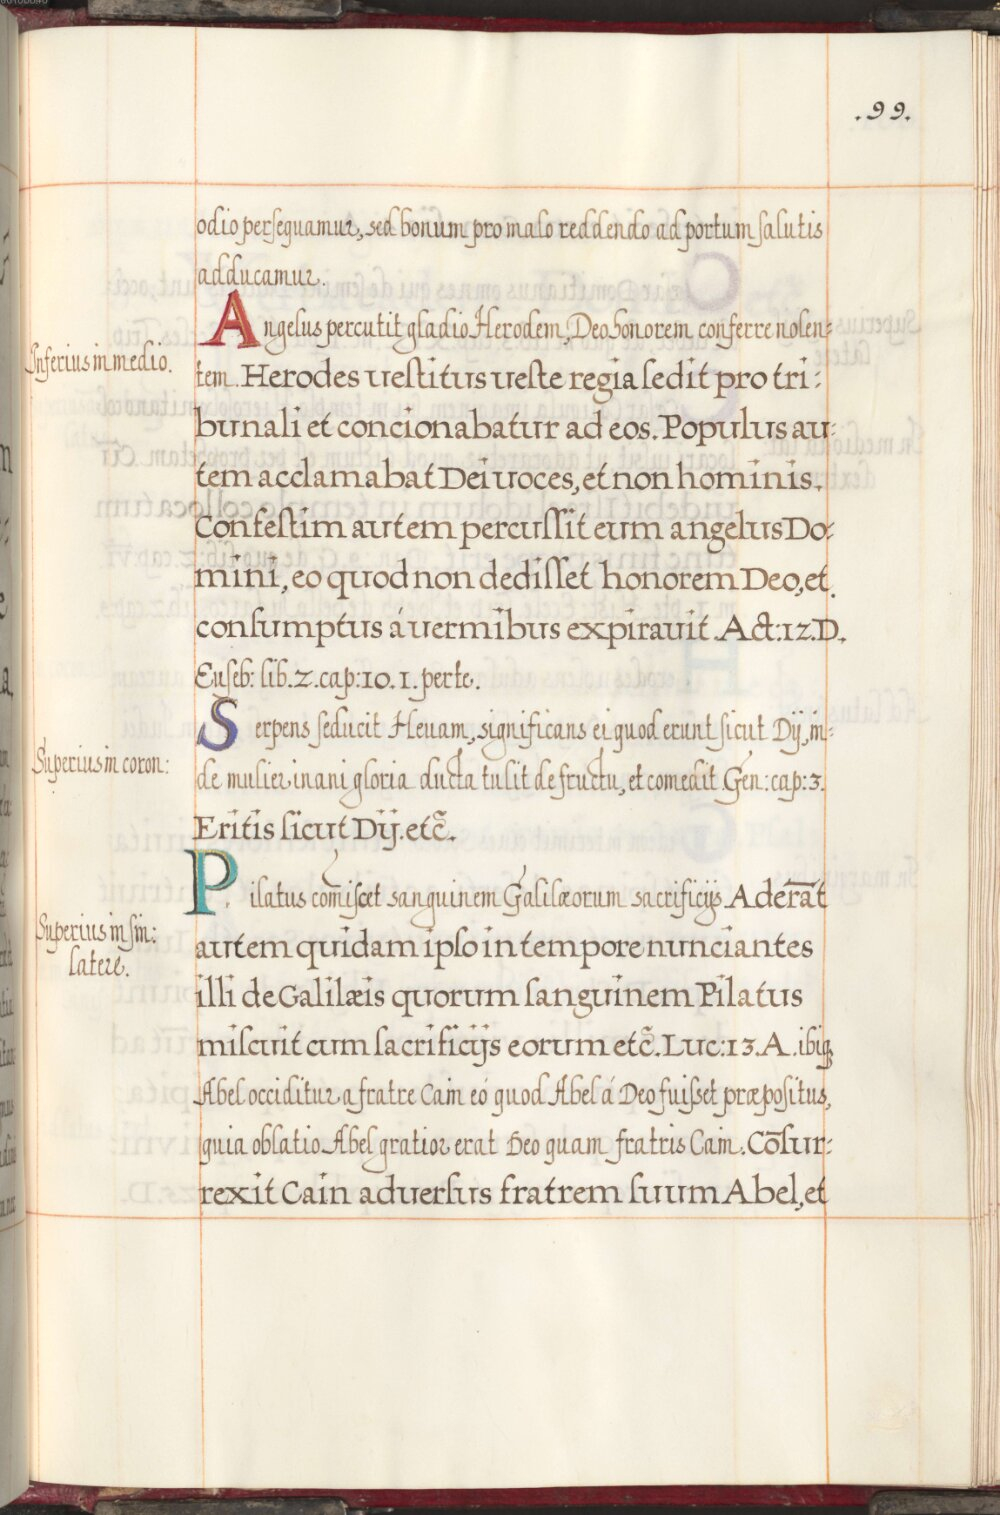 .99.
odio persequamur, sed bonum pro malo reddendo ad portum salutis
adducamur.
Angelus percutit gladio Herodem, Deo honorem conferre nolen:
Inferius in medio.
tem. Herodes vestitus veste regia sedit pro tri:
bunali et concionabatur ad eos. Populus au:
tem acclamabat Dei voces, et non hominis.
Confestim autem percussit eum angelus Do:
mini, eo quod non dedisset honorem Deo, et
consumptus á vermibus expiravit. Act: 12. D.
Euseb: lib. 2. cap: 10. 1. perte.
Serpens seducit Hevam, significans ei quod erunt sicut Dij, in:
Superius in coron:
de mulier inani gloria ducta tulit de fructu, et comedit Gen: cap: 3.
Eritis sicut Dij. etc̃.
Pilatus com̃iscet sanguinem Galilæorum sacrificijs Aderãt
Superius in sin:
latere.
autem quidam ipso in tempore nunciantes
illi de Galilæis quorum sanguinem Pilatus
miscuit cum sacrificijs eorum etc̃. Luc: 13. A. ibiq
Abel occiditur a fratre Cain eó quod Abel á Deo fuisset præpositus,
quia oblatio Abel gratior erat Deo quam fratris Cain. Cõsur:
rexit Cain adversus fratrem suum Abel, et